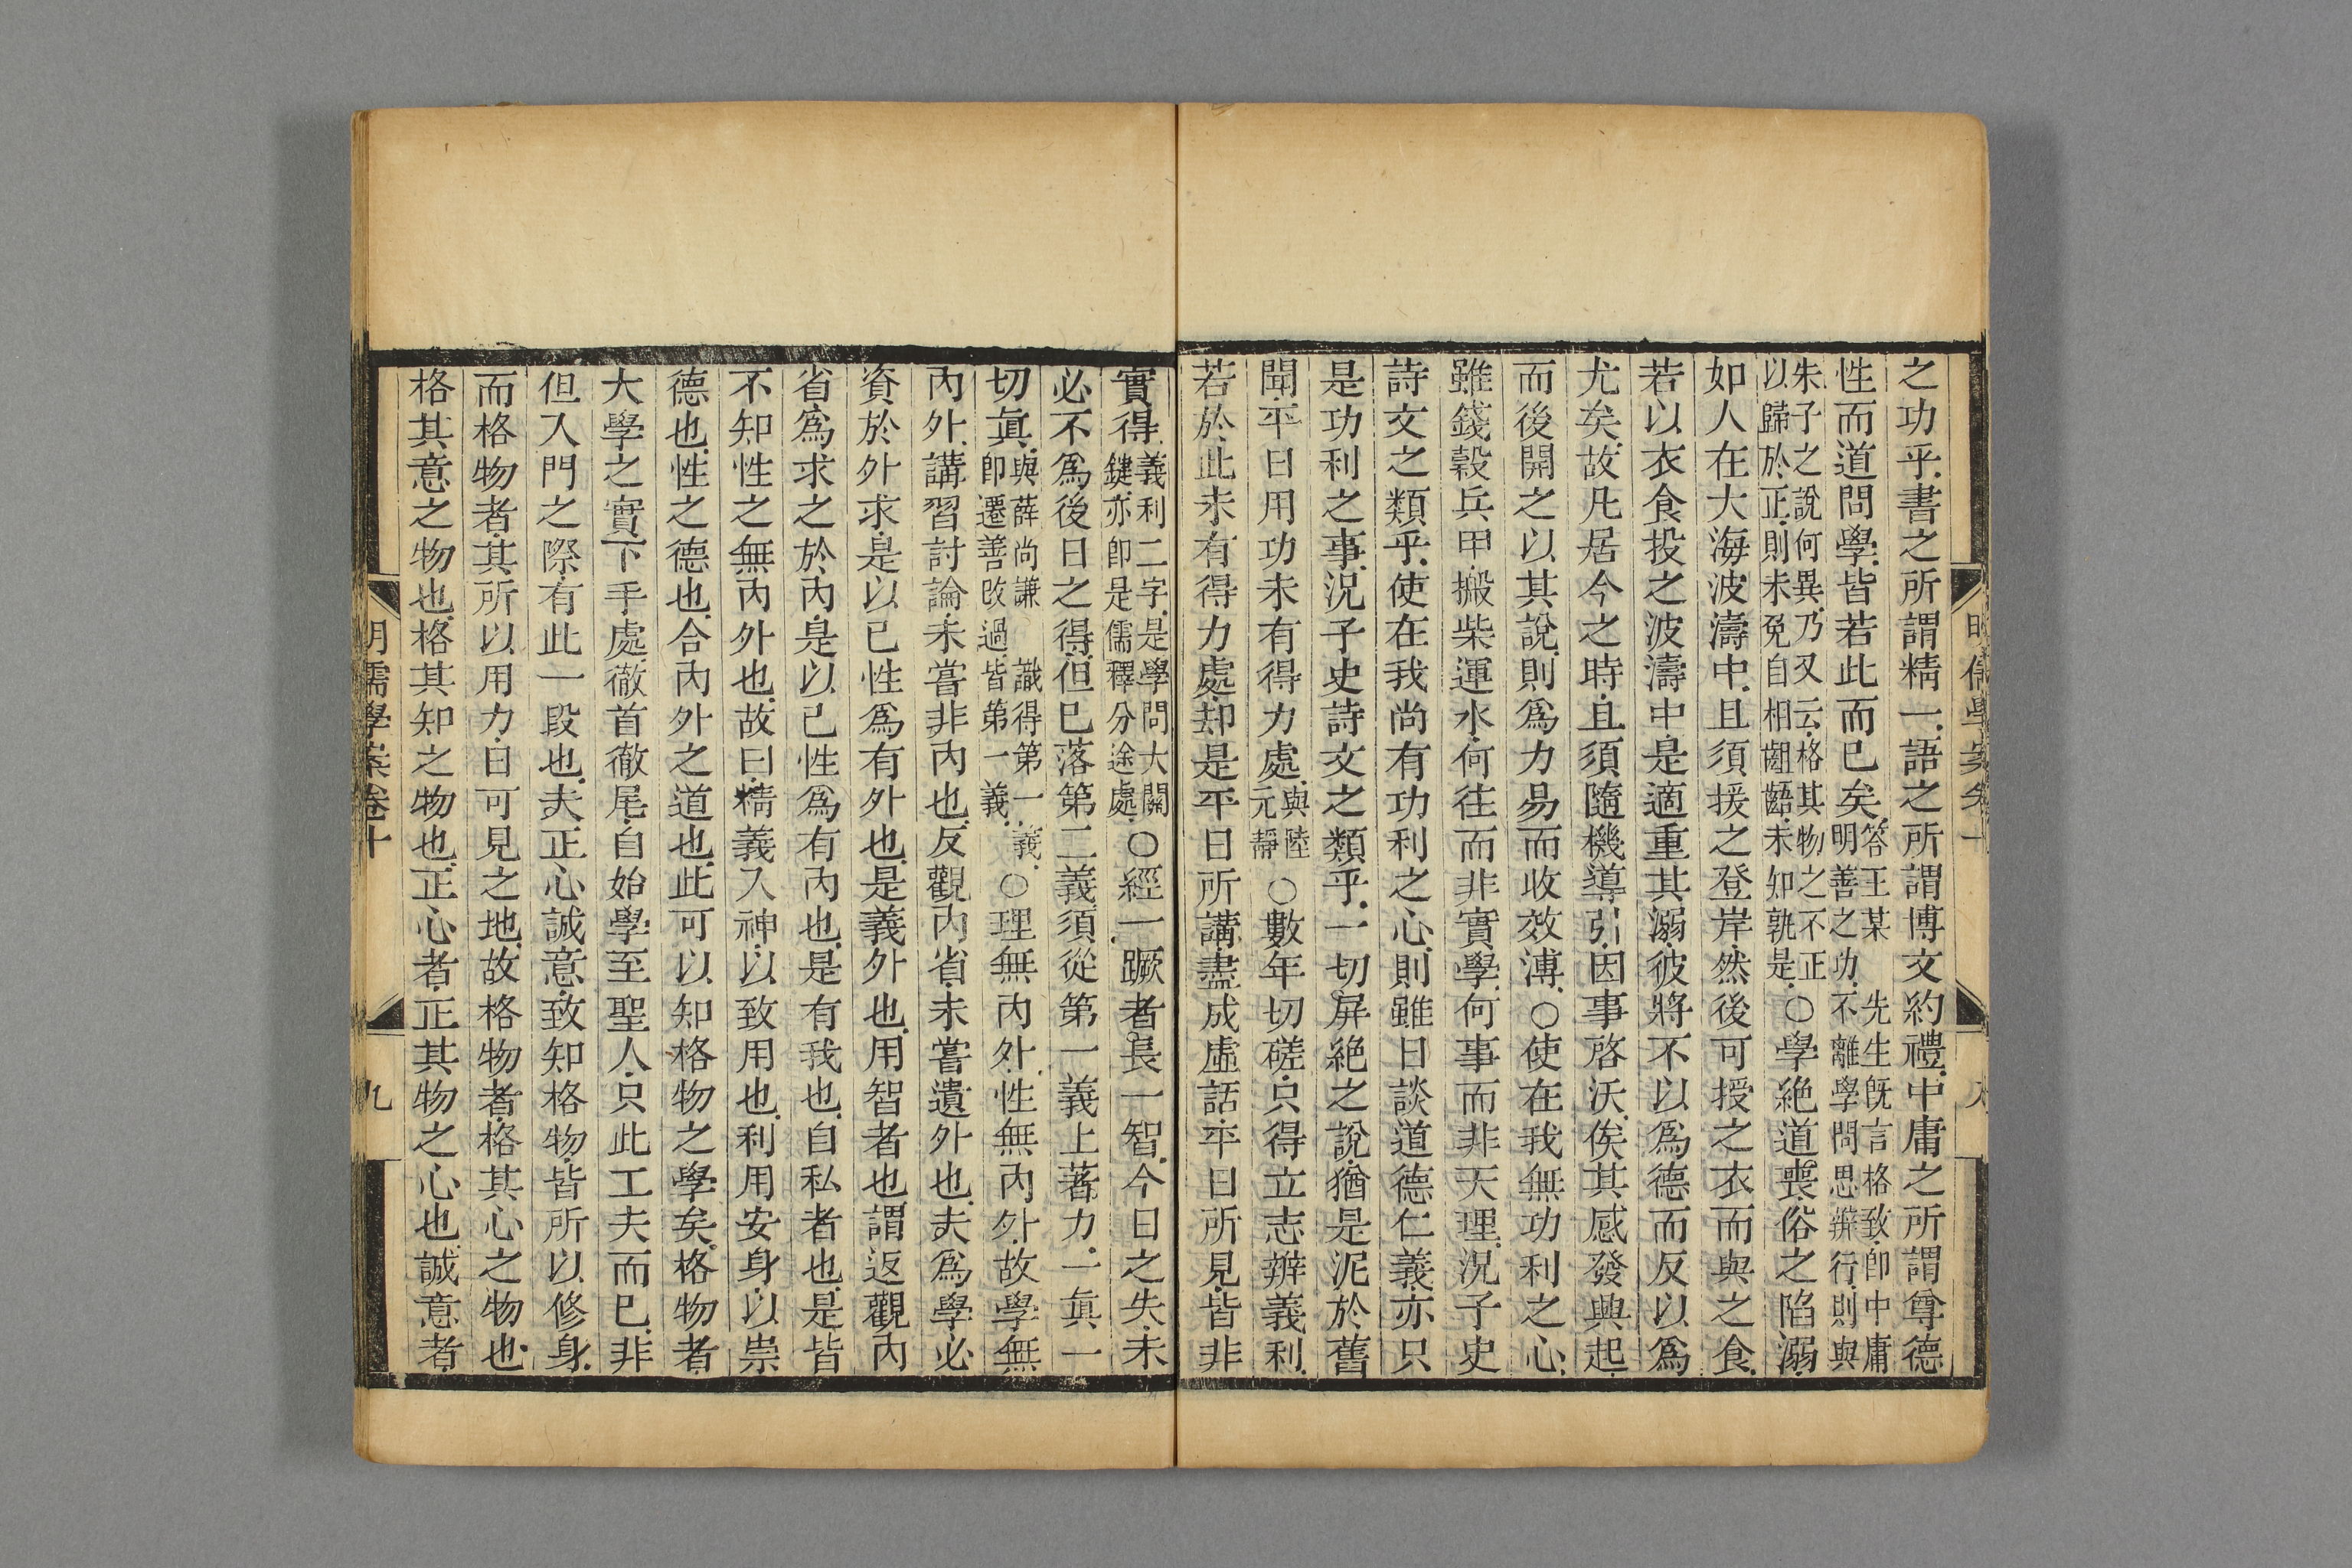 之功乎書之所謂精一語之所謂博文約禮中庸之所謂尊德
性而道問學皆若此而已矣答王某明善之功先生既言格致即中庸不離學問思辨行則與
朱子之說何異乃又云格其物之不正以歸於正則未免自相齟齬未知孰是○學絶道喪俗之陷溺
如人在大海波濤中且須援之登岸然後可授之衣而與之食
若以衣食投之波濤中是適重其溺彼將不以爲德而反以爲
尤矣故凡居今之時且須隨機導引因事啓沃俟其感發興起
而後開之以其說則爲力易而收效溥○使在我無功利之心
雖錢穀兵甲搬柴運水何往而非實學何事而非天理況子史
詩文之類乎使在我尚有功利之心則雖日談道德仁義亦只
是功利之事況子史詩文之類乎一切屏絶之說猶是泥於舊
聞平日用功未有得力處與陸元靜○數年切磋只得立志辨義利
若於此未有得力處却是平日所講盡成虛話平日所見皆非
實得義利二字是學問大關鍵亦即是儒釋分途處○經一蹶者長一智今日之失未
必不爲後日之得但已落第二義須從第一義上著力一眞一
切眞與薛尚謙識得第一義即遷善改過皆第一義○理無內外性無內外故學無
內外講習討論未嘗非內也反觀內省未嘗遺外也夫爲學必
資於外求是以已性爲有外也是義外也用智者也謂返觀內
省爲求之於內是以已性爲有內也是有我也自私者也是皆
不知性之無內外也故曰精義入神以致用也利用安身以崇
德也性之德也合內外之道也此可以知格物之學矣格物者
大學之實下手處徹首徹尾自始學至聖人只此工夫而已非
但入門之際有此一段也夫正心誠意致知格物皆所以修身
而格物者其所以用力日可見之地故格物者格其心之物也
格其意之物也格其知之物也正心者正其物之心也誠意者
明儒學案卷十
九